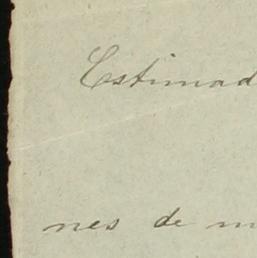 Estimad
nes de m